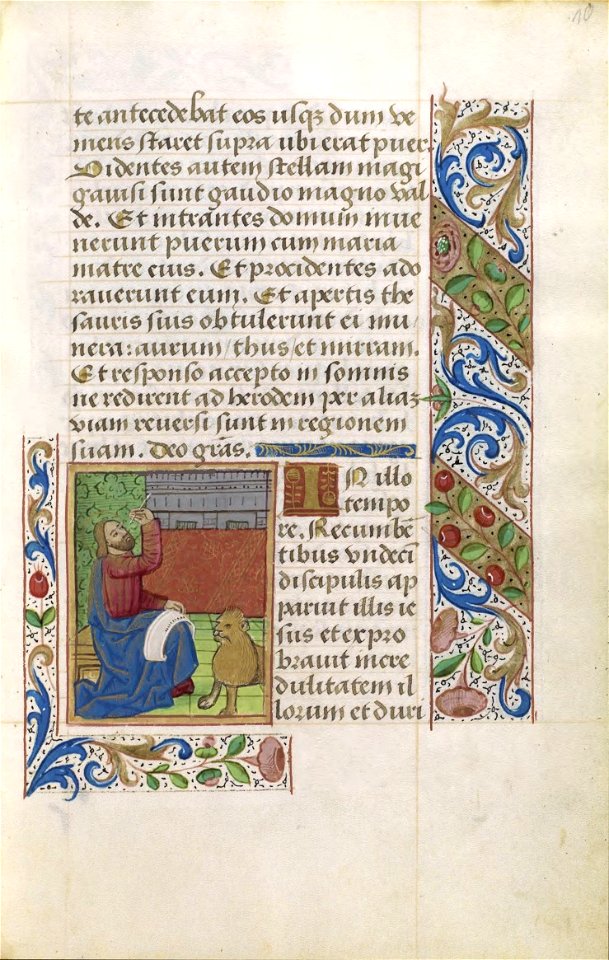 10
te antecedebat eos usqꝫ dum ve
niens staret supra ubi erat puer.
Videntes autem stellam magi
gauisi sunt gaudio magno val
de. Et intrantes domum inue
nerunt puerum cum maria
matre eius. Et procidentes ado
rauerunt eum. Et apertis the
sauris suis obtulerunt ei mu
nera: aurum/thus/et mirram.
Et responso accepto in somnis
ne redirent ad herodem per aliaꝫ
viam reuersi sunt in regionem
suam. Deo grãs.
IN illo
tempo
re. Recumbẽ
tibus vndeci
discipulis ap
paruit illis ie
sus et expro
brauit incre
dulitatem il
lorum et duri